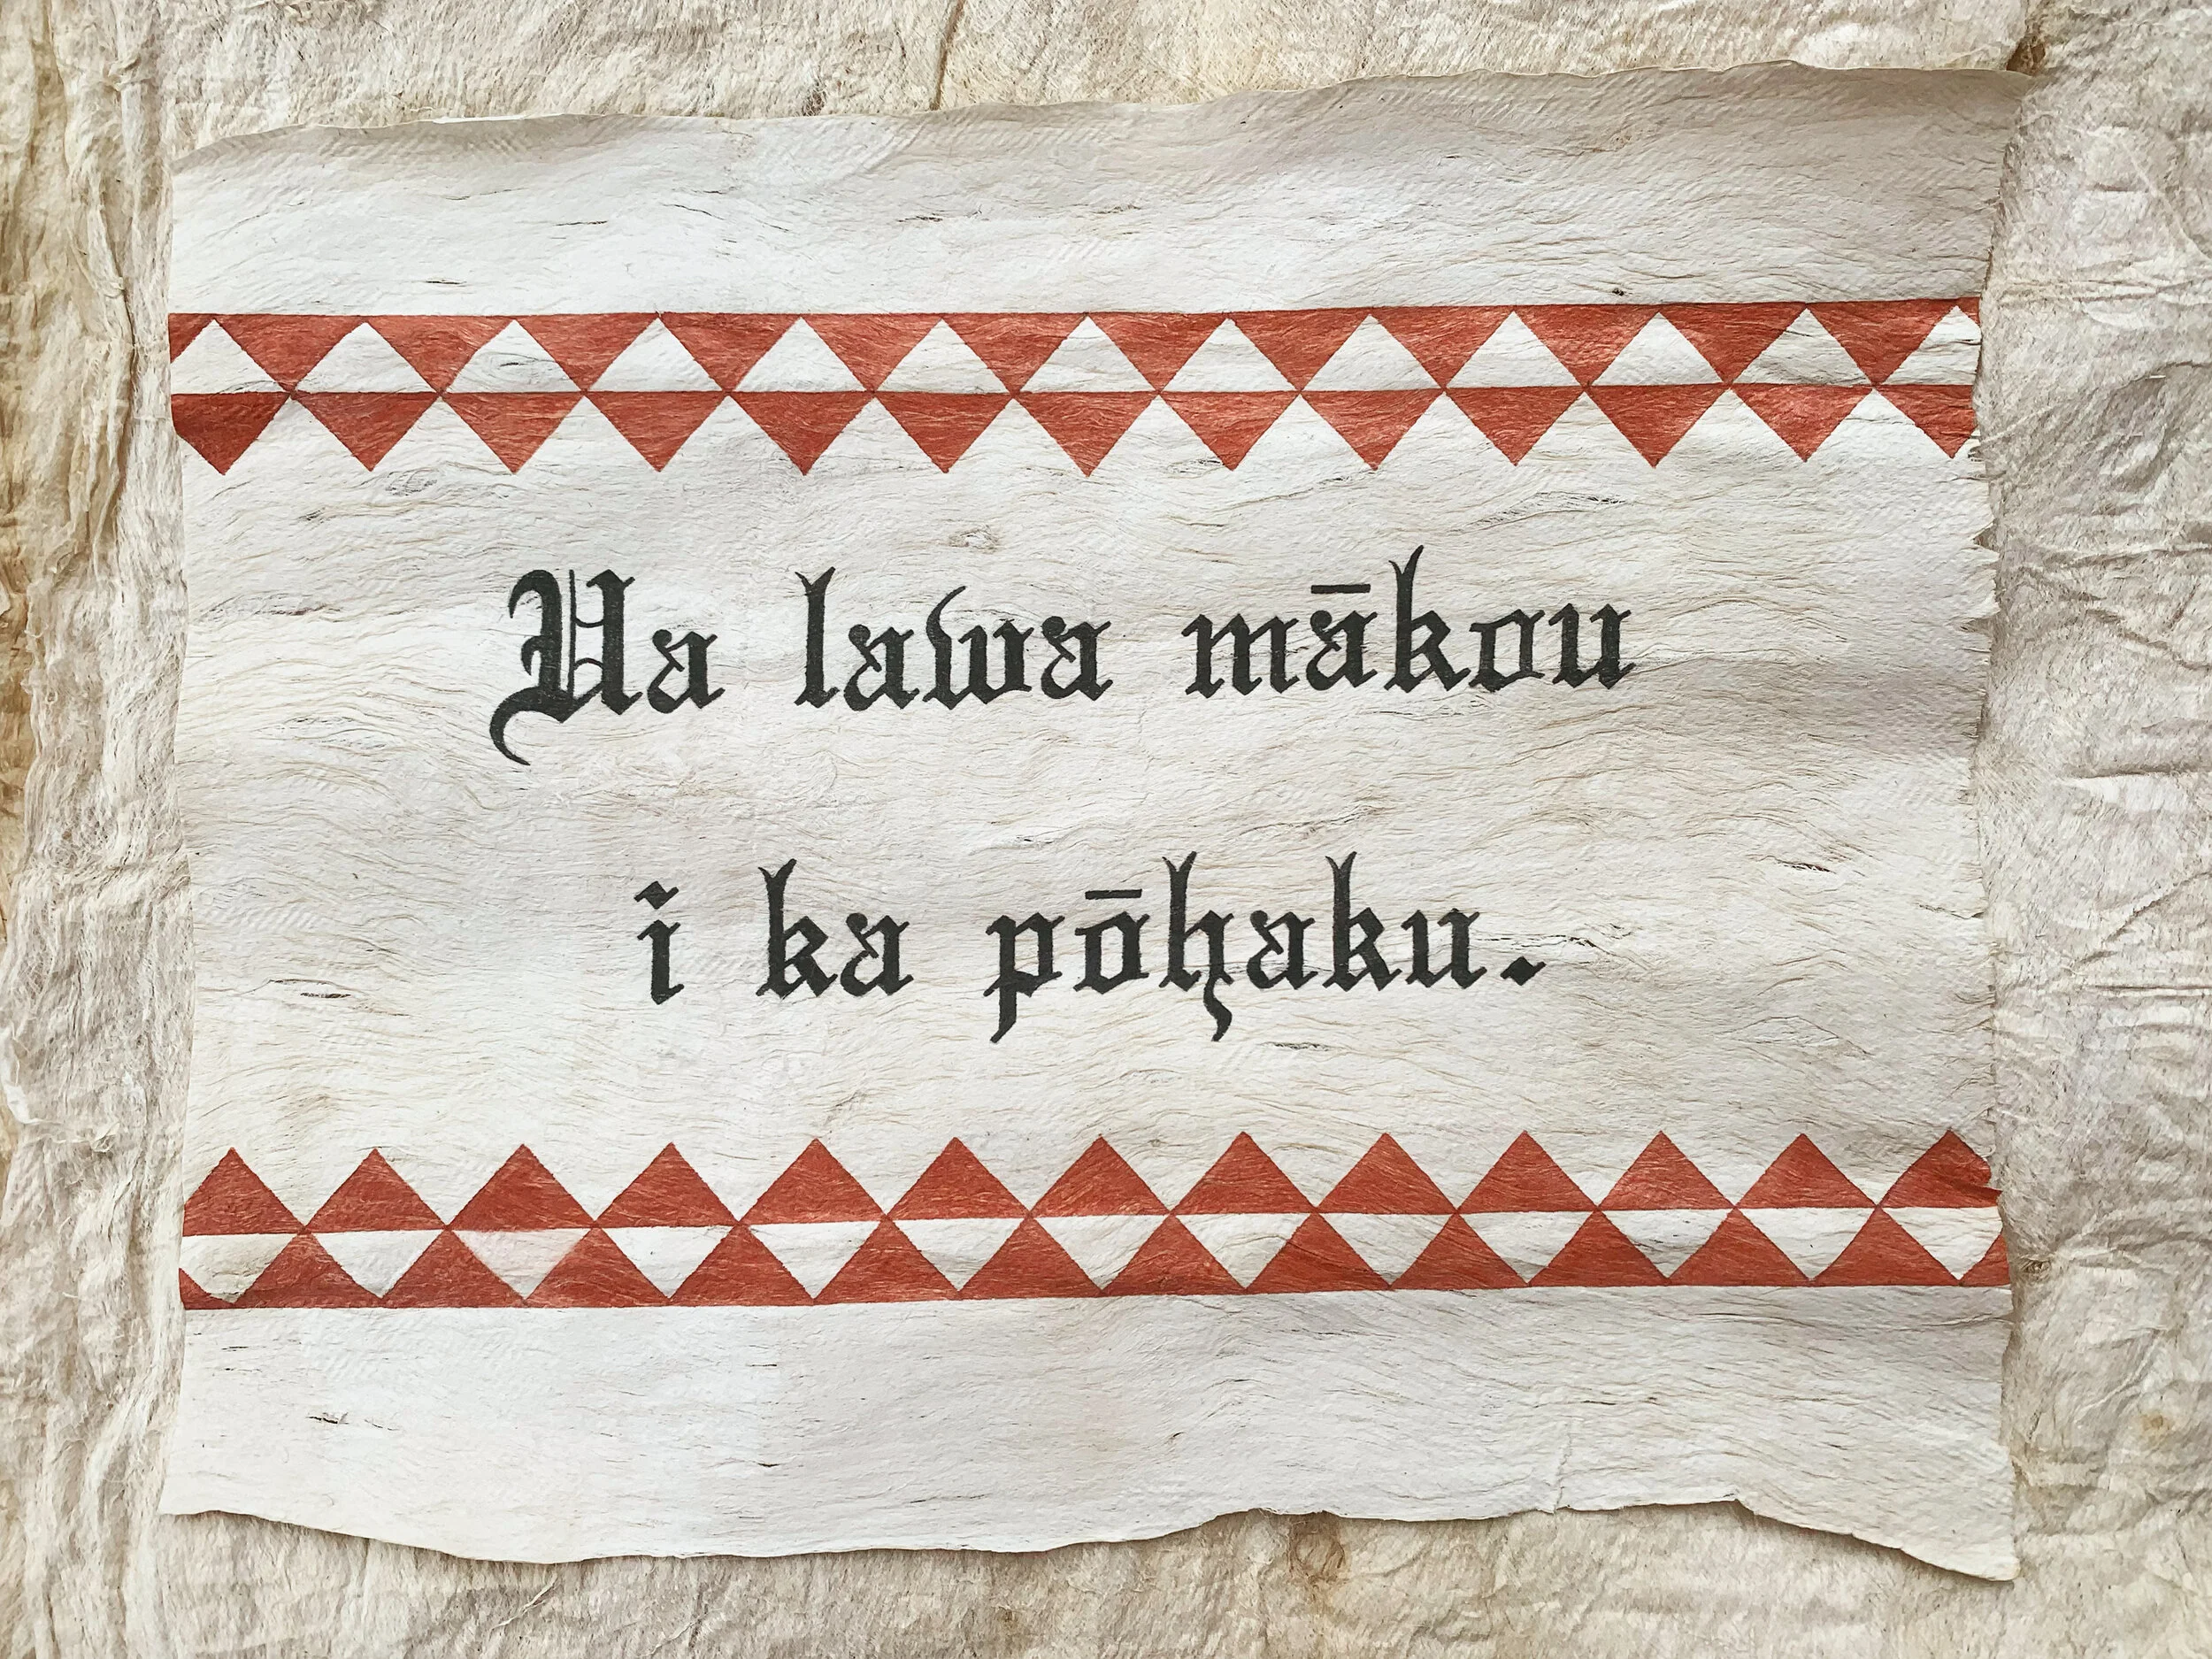 Ua lawa mākou
i ka pōhaku.